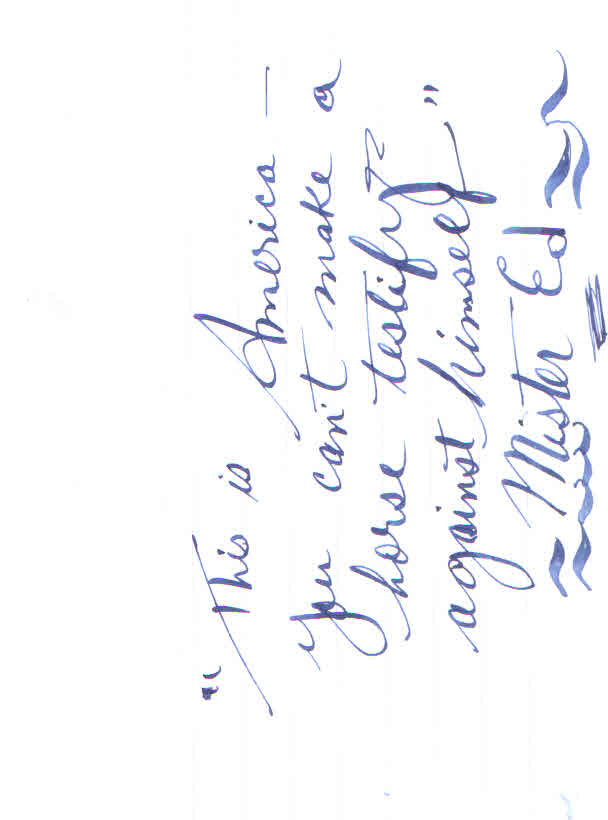 "This is America —
you can't make a
horse testify
against himself"
Mister Ed